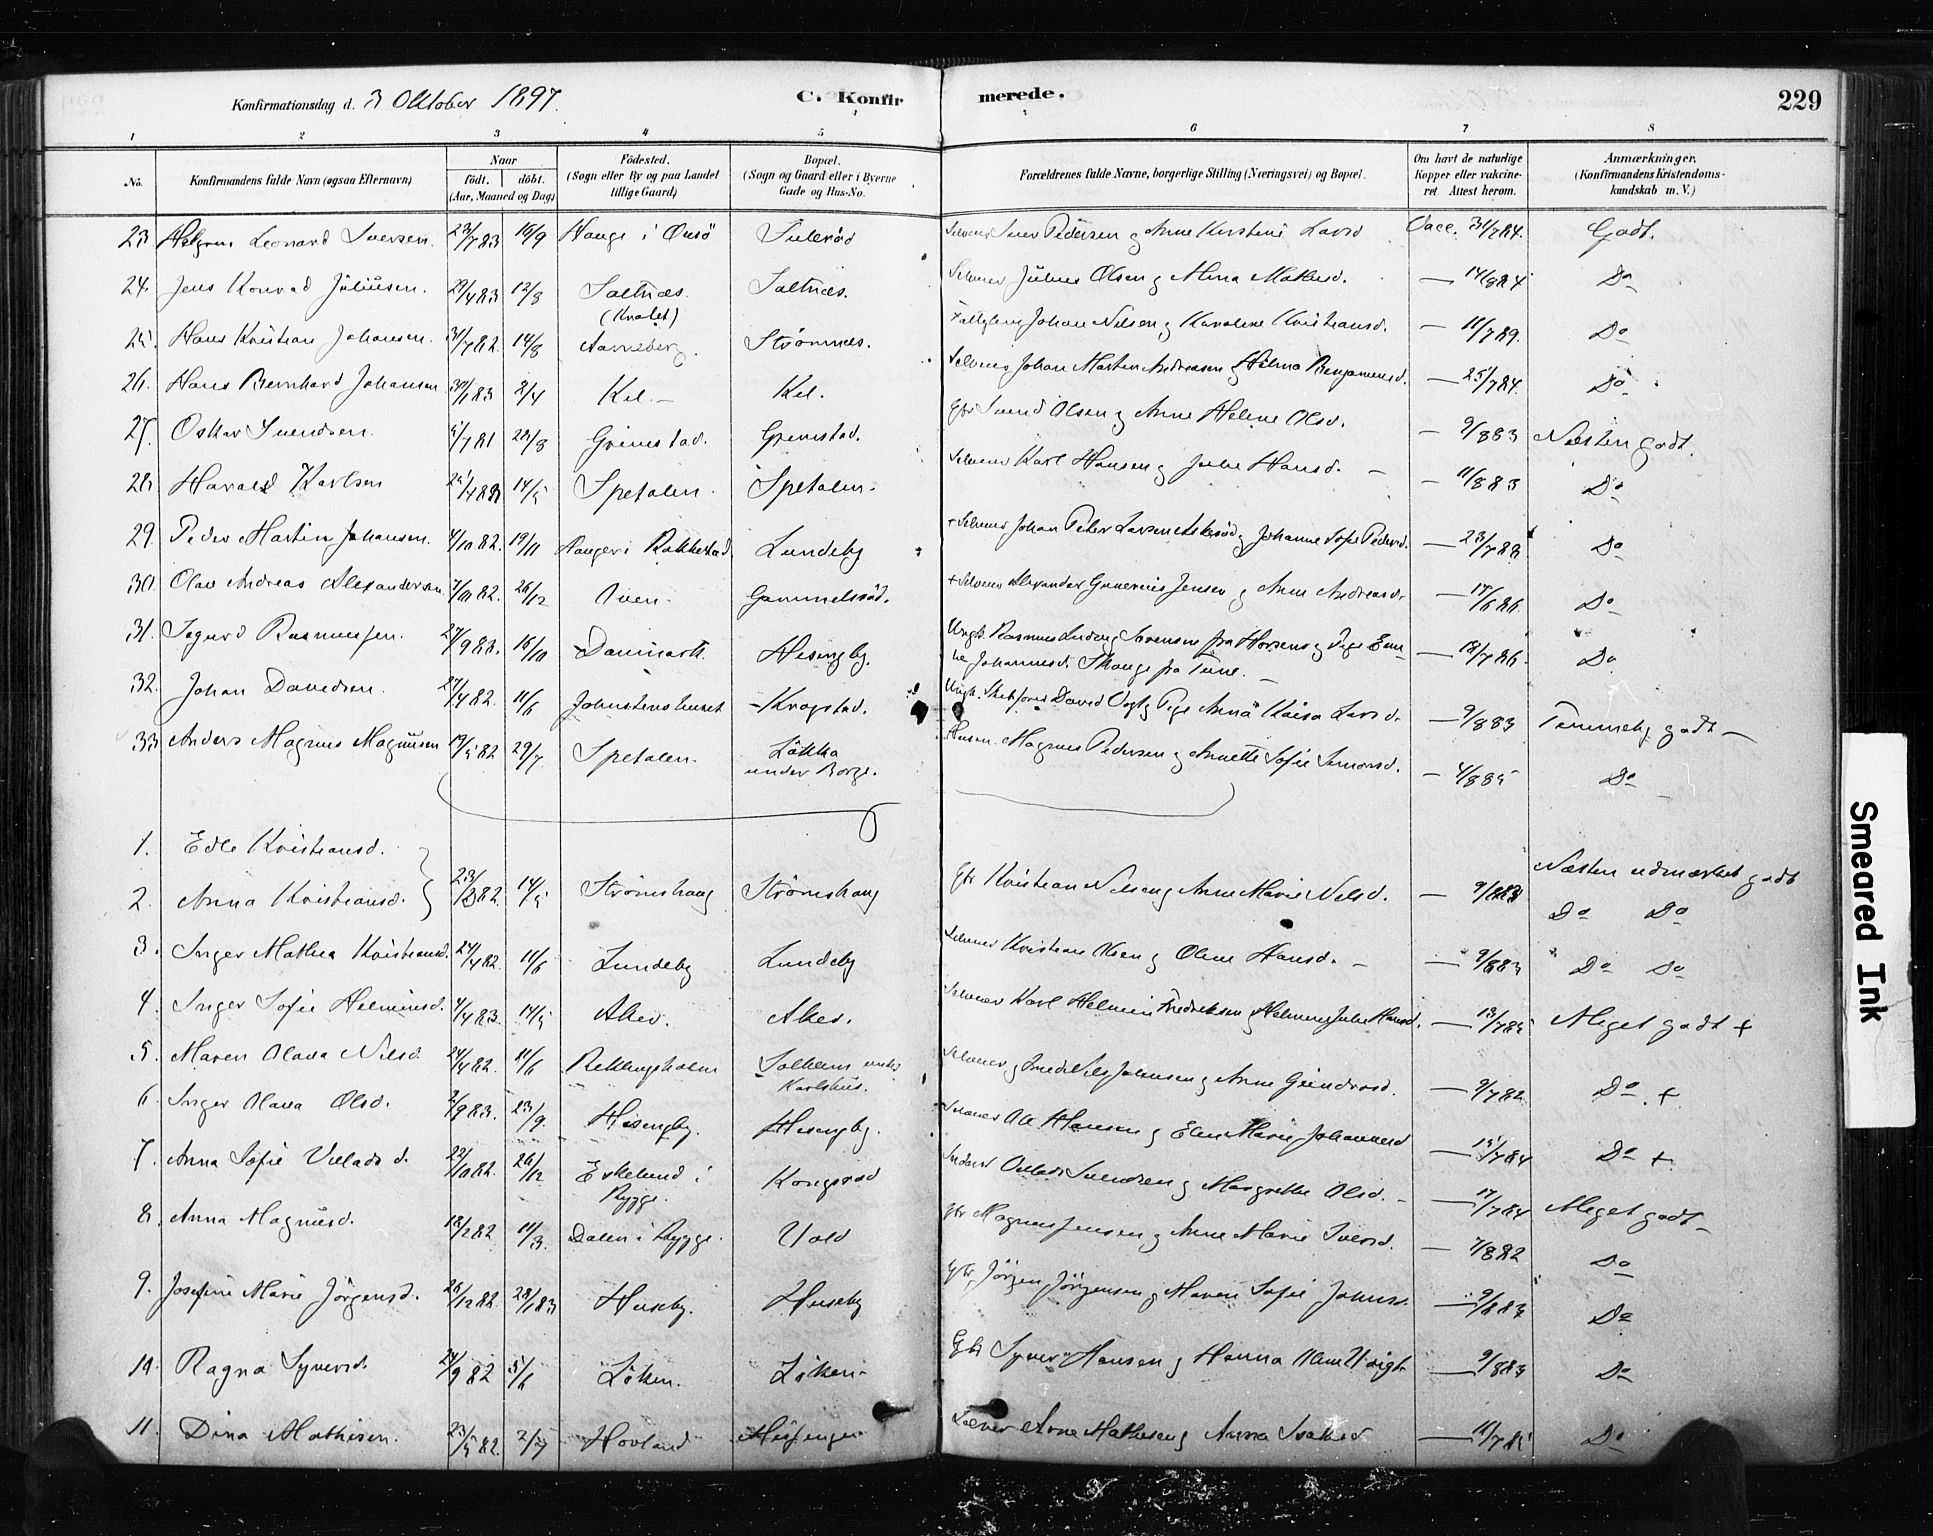 Konfirmationsdag d. 3 Oktober 1897. C. Konfirmerede. 229
1 2 3 4 5 6 7 8
No. Konfirmandens fulde Navn (ogsaa Efternavn) Naar födt. döbt. (Aar, Maaned og Dag) Födested. (Sogn eller By og paa Landet tillige Gaard) Bopæl. (Sogn og Gaard eller i Byerne Gade og Hus-No. Forældrenes fulde Navne, borgerlige Stilling (Næringsvei) og Bopæl. Om havt de naturlige Kopper eller vakcineret. Attest herom. Anmærkninger. (Konfirmandens Kristendomskundskab m. V.)
23. Leonard Iversen. 23/7 83 16/9 Hauge i Onsö Iver Pedersen og Anne Kirstine Larsd Vacc. 31/7 84. Godt.
24. Jens Konrad Júliúsen. 29/4 83 12/8 Saltnæs. (Kvalet) Saltnæs. Selveier Július Olsen og Mina Mathisd. — 14/8 84 Do
25. Hans Kristian Johansen. 31/7 82. 14/8 Strömnæs. Johan Nilsen og Karoline Kristiansd. — 11/7 89. Do
26. Hans Bernhard Johansen 30/1 83 2/4 Kil. — Kil. Selveier Johan Martin Andreasen og Helma Benjaminsd. — 25/7 84. Do
27. Oskar Svendsen. 5/7 81 28/8 Grimstad. Grimstad. Gbr Svend Olsen og Anne Helene Olsd. — 9/8 83 Næsten godt.
28. Harald Karlsen 14/5 Spetalen. Spetalen. Selveier Karl Hansen og Julie Hansd. — — 11/8 83 Do
29. Peder Martin Johansen. 4/10 82. 19/11 Hauger i Rakkestad Lundeby + Selveier Johan Peter Larsen og Johanne Sofie Pedersd. — 23/7 88 Do
30. Olav Andreas Alexandersen 7/10 82. 26/12 Oven. Gammelsröd. + Selveier Alexander Gunerius Jensen og Anne Andreasd. — 17/6 86. Do
31. Sigurd Rasmussen. 27/9 83. 16/10 Danmark. Hisingby. Ungk. Rasmus Ludvig Sörensen fra Horsens og Pige Emilie Johannesd. Skauge fra Tune. — — 18/7 86. Do
32. Johan Davidsen. 27/4 82. 11/6 Johnstenshuset Krogstad. Ungk. David Vogt og Pige Anna Kaisa Larsd. — 9/8 83 Temmelig godt —
33 Anders Magnus Magnúsen 19/5 82 29/7 Spetalen. Løkka under Borge. Husm. Magnus Pedersen og Annette Sofie Simonsd. — 4/8 85 Do
1. Edle Kristiansd.
2. Anna Kristiansd. 14/5 Strömshaug Strömshaug Gbr Kristian Nilsen og Anne Marie Nilsd. — 9/8 83 Næsten udmærket godt
Do Do
3. Inger Mathea Kristiansd. 24/4 82 11/6 Lundeby Lundeby Selveier Kristian Olsen og Oline Hansd. — — 9/8 83 Do Do
4. Inger Sofie Helminsd. 4/4 83. 14/5 Aker. Aker. Selveier Karl Helmin Fredriksen og Helmine Julie Hansd. — 13/7 85 Meget godt +
5. Maren Olava Nilsd. 24/4 82. 11/6 Rektingsholm Solheim under Karlshus. Selveier og Smed Nils Johnsen og Anne Gundrosd. — 9/7 82 Do +
6. Inger Olava Olsd. 2/9 83. 23/9. Hisingby. Hisingby. Selveier Ole Hansen og Elen Marie Johannesd — 15/7 84 Do +
7. Anna Sofie Villadsd. 22/10 82. 26/12 Eskelund i Rygge. Kongsrød Svendsen og Margrethe Olsd. — — 17/7 84 Meget godt —
8. Anna Magnúsd. 18/2 82 11/3. Dalen i Rygge. Vold Gbr Magnus Jensen og Anne Marie Iversd. — 7/8 82 Do
9. Josefine Marie Jörgensd. 26/12 82 28/1 83 Huseby. Huseby Gbr. Jörgen Jörgensen og Maren Sofie Johnsd. — 9/8 83 Do
10. Ragna Syversd. 24/9 82 5/6 Löken. Löken. Gbr Syver Hansen og Hanna — 9/8 83 Do
11. Dina Mathisen. 23/5 82. 2/7 Hovland Arne Mathisen og Anna — 11/7 85 Do
Smeared Ink